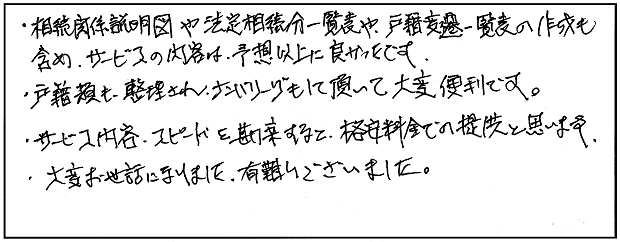 ・相続関係説明図や法定相続分一覧表や、戸籍変遷一覧表の作成も
含め、サービスの内容は、予想以上に良かったです。
・戸籍類も整理され、ナンバリングもして頂いて大変便利です。
・サービス内容、スピードを勘案すると、格安料金での提供と思います。
・大変お世話になりました。有難うございました。